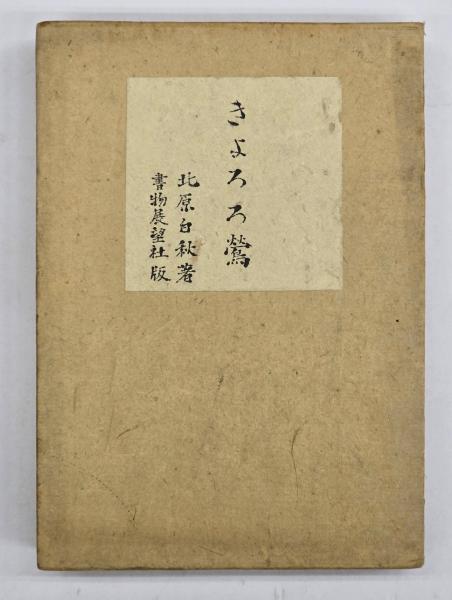 きよろろ鶯
北原白秋著
書物展望社版